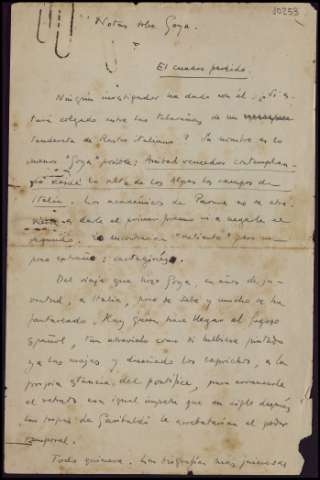 10253
"Notas sobre Goya.
El cuadro perdido.
Ningún investigador ha dado con él. ¿Es-
tará colgado entre las telarañas de un
tenducho de Rastro italiano? Su nombre es lo
menos "Goya" posible: Aníbal vencedor contemplan-
do desde lo alto de los Alpes los campos de
Italia. Los académicos de Parma no se atre-
a darle el primer premio ni a negarle el
segundo. Lo encontraron "caliente" pero un
poco extraño; cartaginés.
Del viaje que hizo Goya, en años de ju-
ventud, a Italia, poco se sabe y mucho se ha
fantaseado. Hay quien hace llegar al fogoso
español, tan atraviado como si hubiese pintado
ya las majas y dibujado los caprichos, a la
propia estancia del pontífice, para arrancarle
el retrato con igual ímpetu que un siglo después
las tropas de Garibaldi le arrebatarían el poder
temporal.
Todo quimera. Las biografías más juiciosas